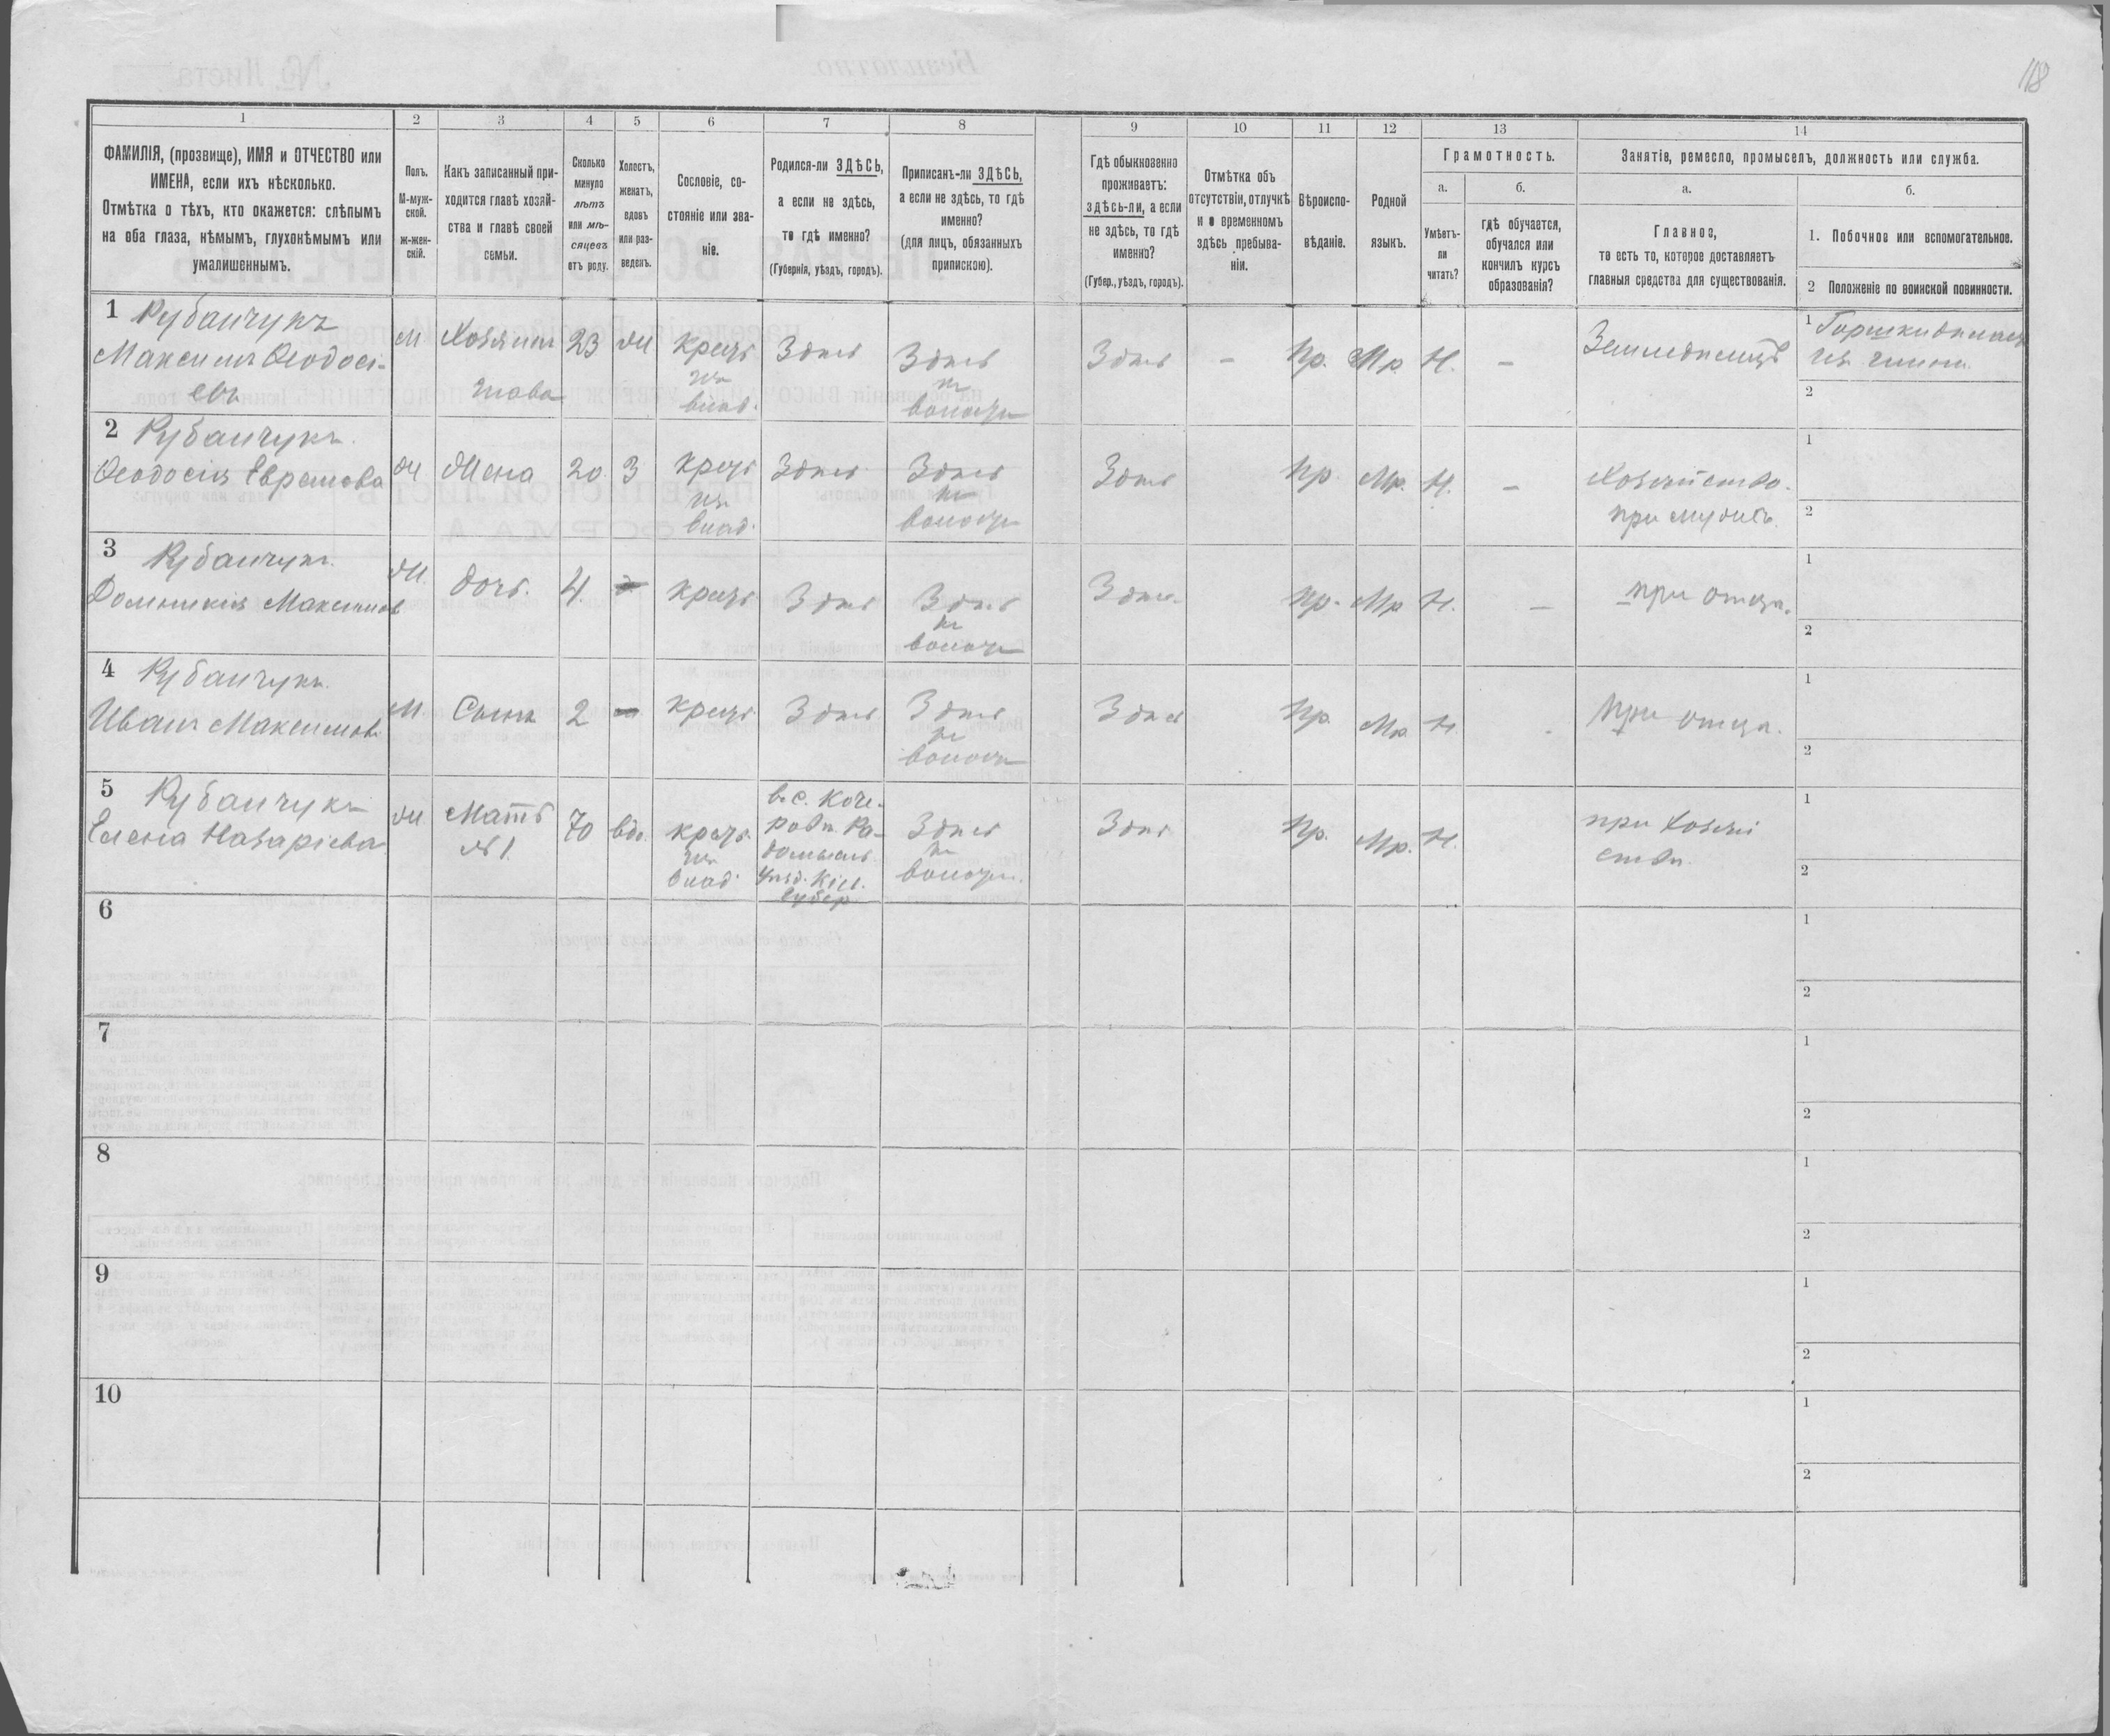 118
1
2
3
4
5
6
7
8
9
10
11
12
13
14
ФАМИЛІЯ, (прозвище), ИМЯ и ОТЧЕСТВО или
ИМЕНА, если ихъ нѣсколько.
Отмѣтка о тѣхъ, кто окажется: слѣпымъ
на оба глаза, нѣмымъ, глухонѣмымъ или
умалишеннымъ.
Полъ.
М-муж-
ской.
ж-жен-
скій.
Какъ записанный при-
ходится главѣ хозяй-
ства и главѣ своей
семьи.
Сколько
минуло
лѣтъ
или мѣ-
сяцевъ
отъ роду.
Холостъ,
женатъ,
вдовъ
или раз-
веденъ.
Сословіе, со-
стояніе или зва-
ніе.
Родился-ли ЗДѢСЬ,
а если не здѣсь,
то гдѣ именно?
(Губернія, уѣздъ, городъ).
Приписанъ-ли ЗДѢСЬ,
а если не здѣсь, то гдѣ
именно?
(для лицъ, обязанныхъ
припискою).
Гдѣ обыкновенно
проживаетъ:
здѣсь-ли, а если
не здѣсь, то гдѣ
именно?
(Губер., уѣздъ, городъ).
Отмѣтка объ
отсутствіи, отлучкѣ
и о временномъ
здѣсь пребыва-
ніи.
Вѣроиспо-
вѣданіе.
Родной
языкъ.
Грамотность.
а.
Умѣетъ-
ли
читать?
б.
гдѣ обучается,
обучался или
кончилъ курсъ
образованія?
Занятіе, ремесло, промыселъ, должность или служба.
а.
Главное,
то есть то, которое доставляетъ
главныя средства для существованія.
б.
1. Побочное или вспомогательное.
2 Положеніе по воинской повинности.
1 Рубанчукъ
Максимъ Ѳеодосі-
евъ
М
Хозяинъ
глава
23
Ж
крест
изъ
влад.
Здѣсь
Здѣсь
къ
волости
Здѣсь
–
Пр.
Мр.
Н.
–
Земледѣлецъ
1
2
2 Рубанчукъ.
Ѳеодосія Ефремова
Ж
Жена
20.
З
крест
изъ
влад.
Здѣсь
Здѣсь
къ
волости
Здѣсь
Пр.
Мр.
Н.
–
Хозяйство.
при мужѣ.
1
2
3 Рубанчукъ.
Домникія Максимов
Ж.
дочь.
4.
крест
Здѣсь
Здѣсь
къ
волости
Здѣсь
Пр.
Мр
Н.
–
при отца.
1
2
4 Рубанчукъ.
Иванъ Максимовъ
М.
Сынъ
2
крест
Здѣсь
Здѣсь
къ
волости
Здѣсь
Пр.
Мр.
Н.
при отца.
1
2
5 Рубанчукъ
Елена Назаріева
Ж
Мать
№1.
70
вдо.
крест.
изъ
влад.
в. с. Коче-
ровѣ Ра-
домысль.
уѣзд. Кіев.
губер
Здѣсь
къ
волости.
Здѣсь
Пр.
Мр.
Н.
при хозяй
ствѣ.
1
2
6
1
2
7
1
2
8
1
2
9
1
2
10
1
2